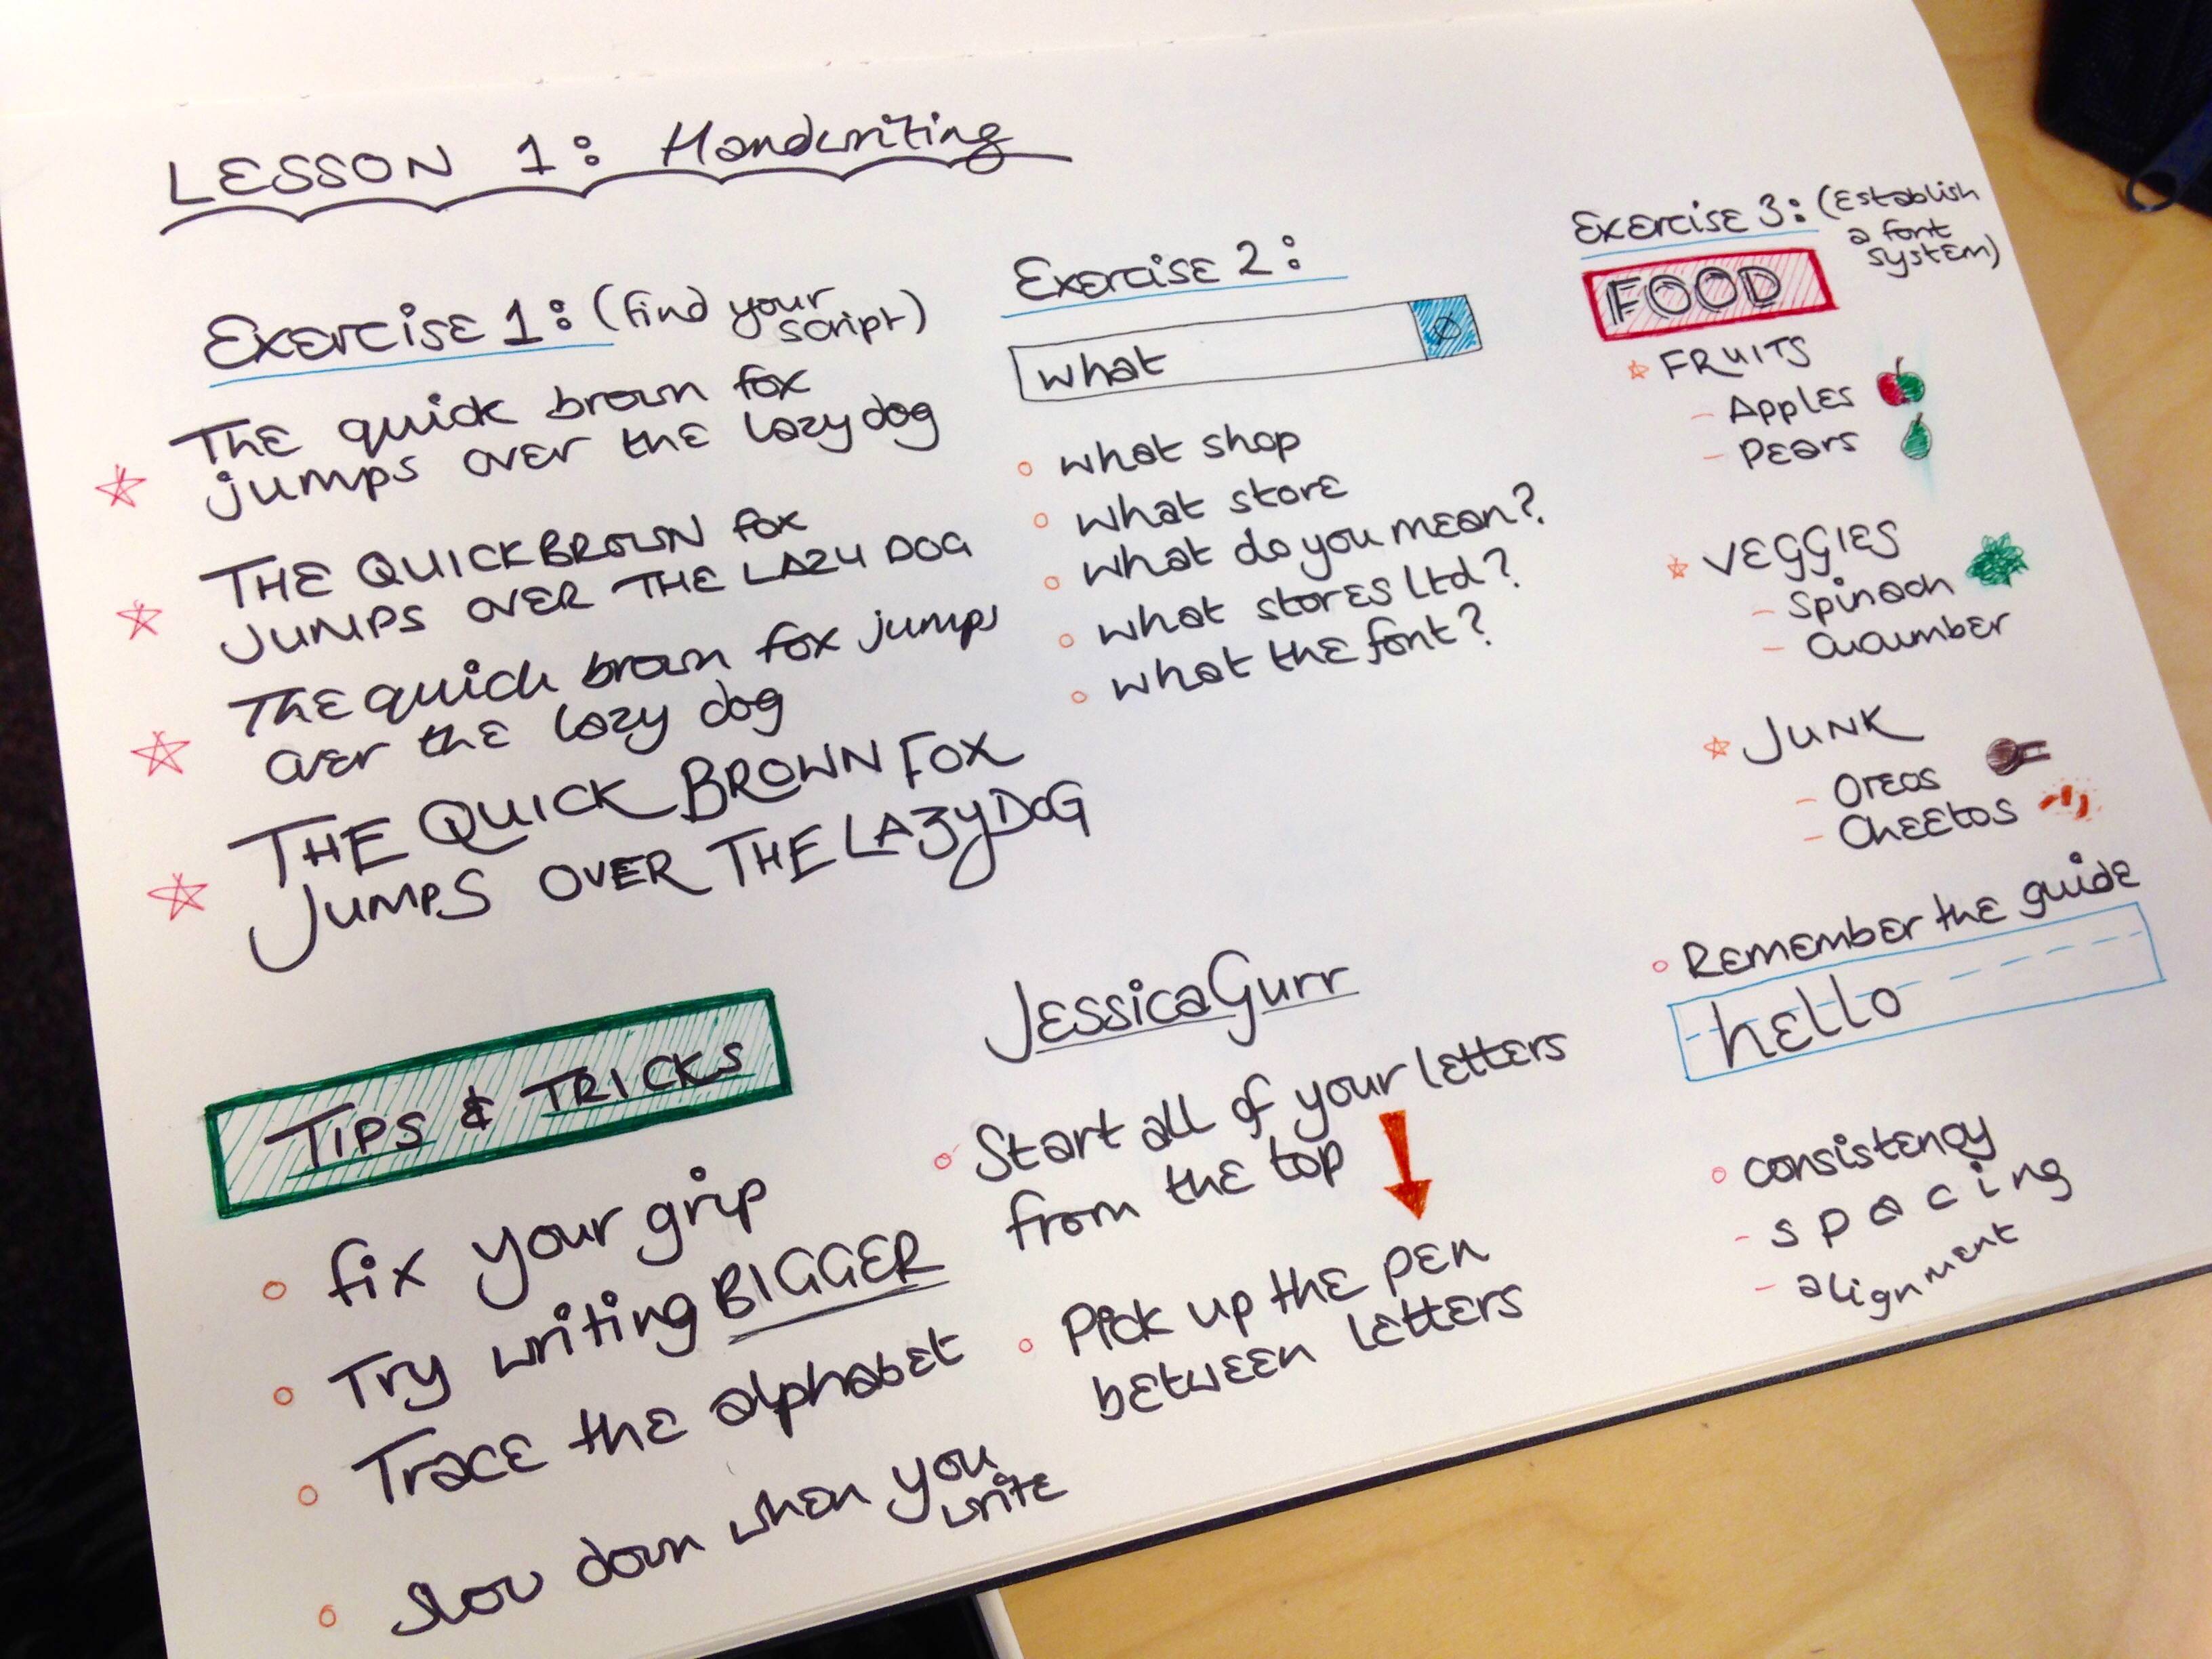 LESSON 1: Handwriting
Exercise 1: (find your
script)
The quick brown fox
jumps over the lazy dog
THE QUICK BROWN fox
JUMPS OVER THE LAZY DOG
The quick brown fox jumps
over the lazy dog
THE QUICK BROWN FOX
JUMPS OVER THE LAZY DOG
Exercise 2:
what
what shop
what store
what do you mean?
what stores Ltd?
what the font?
Exercise 3: (Establish
a font
system)
FOOD
FRUITS
- Apples
- Pears
VEGGIES
- Spinach
- Cucumber
JUNK
- Oreos
- Cheetos
TIPS & TRICKS
fix your grip
Try writing BIGGER
Trace the alphabet
slow down when you
write
Jessica Gurr
Start all of your letters
from the top
Pick up the pen
between letters
Remember the guide
hello
consistency
- spacing
- alignment